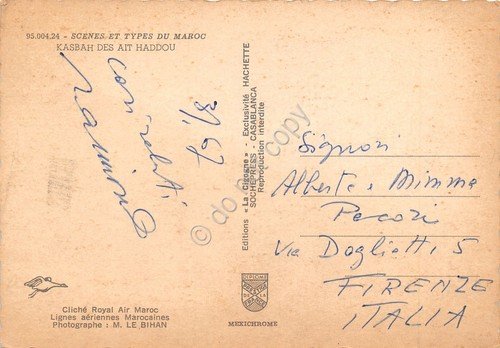 95.004.24 - SCENES ET TYPES DU MAROC
KASBAH DES AIT HADDOU
8/67
con saluti
Editions « La Cigogne » - Exclusivité HACHETTE
SOCHEPRESS - CASABLANCA
Reproduction interdite
© do not copy
Signori
Alberto e Mimma
Pecori
Via Doglietti, 5
FIRENZE
ITALIA
Cliché Royal Air Maroc
Lignes aériennes Marocaines
Photographe : M. LE BIHAN
MEXICHROME